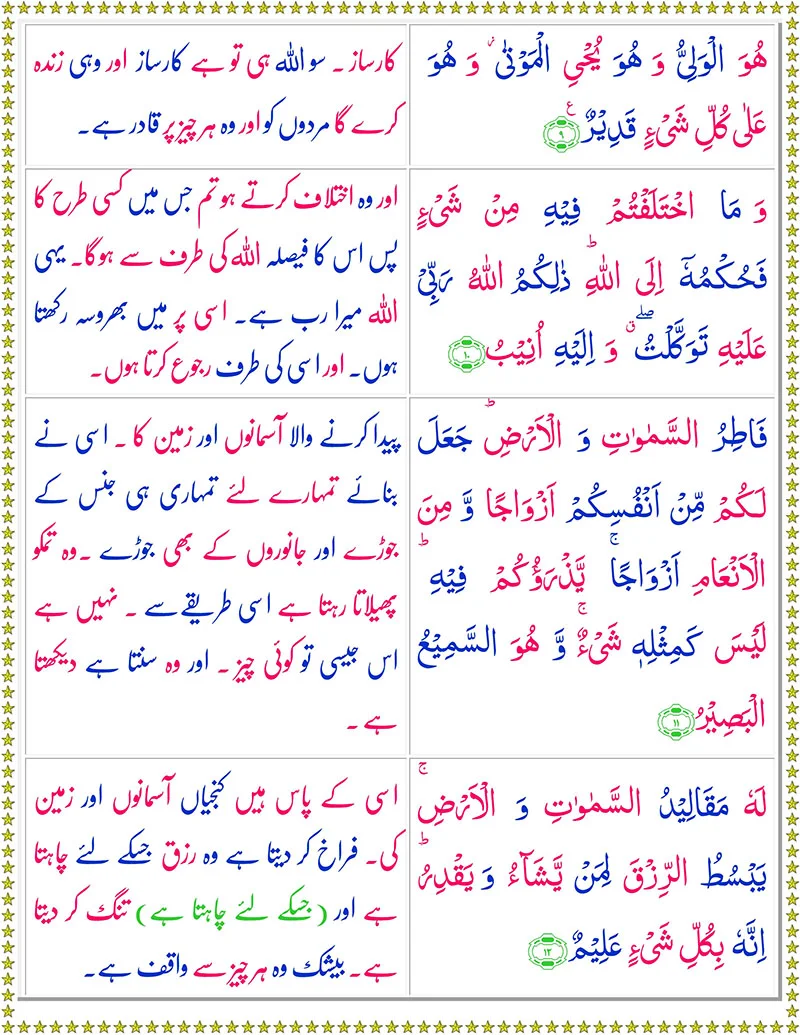 هُوَ الْوَلِيُّ وَ هُوَ يُحْيِ الْمَوْتٰى ۫ وَ هُوَ
عَلٰى كُلِّ شَیْءٍ قَدِیْرٌ ۹ ع
کارساز ۔ سو اللہ ہی تو ہے کارساز اور وہی زندہ
کرے گا مردوں کو اور وہ ہر چیز پر قادر ہے۔
وَ مَا اخْتَلَفْتُمْ فِیْهِ مِنْ شَیْءٍ
فَحُكْمُهٗۤ اِلَى اللّٰهِ ؕ ذٰلِكُمُ اللّٰهُ رَبِّیْ
عَلَیْهِ تَوَكَّلْتُ ۖۗ وَ اِلَیْهِ اُنِیْبُ ۱۰
اور وہ اختلاف کرتے ہو تم جس میں کسی طرح کا
پس اس کا فیصلہ اللہ کی طرف سے ہوگا۔ یہی
اللہ میرا رب ہے۔ اسی پر میں بھروسہ رکھتا
ہوں۔ اور اسی کی طرف رجوع کرتا ہوں۔
فَاطِرُ السَّمٰوٰتِ وَ الْاَرْضِ ؕ جَعَلَ
لَكُمْ مِّنْ اَنْفُسِكُمْ اَزْوَاجًا وَّ مِنَ
الْاَنْعَامِ اَزْوَاجًا ۚ یَّذْرَؤُكُمْ فِیْهِ ؕ
لَیْسَ كَمِثْلِهٖ شَیْءٌ ۚ وَّ هُوَ السَّمِیْعُ
الْبَصِیْرُ ۱۱
پیدا کرنے والا آسمانوں اور زمین کا ۔ اسی نے
بنائے تمہارے لئے تمہاری ہی جنس کے
جوڑے اور جانوروں کے بھی جوڑے ۔ وہ تمکو
پھیلاتا رہتا ہے اسی طریقے سے ۔ نہیں ہے
اس جیسی تو کوئی چیز ۔ اور وہ سنتا ہے دیکھتا
ہے ۔
لَهٗ مَقَالِیْدُ السَّمٰوٰتِ وَ الْاَرْضِ ۚ
یَبْسُطُ الرِّزْقَ لِمَنْ یَّشَآءُ وَ یَقْدِرُ ؕ
اِنَّهٗ بِكُلِّ شَیْءٍ عَلِیْمٌ ۱۲
اسی کے پاس ہیں کنجیاں آسمانوں اور زمین
کی۔ فراخ کر دیتا ہے وہ رزق جسکے لئے چاہتا
ہے اور (جسکے لئے چاہتا ہے) تنگ کر دیتا
ہے۔ بیشک وہ ہر چیز سے واقف ہے۔